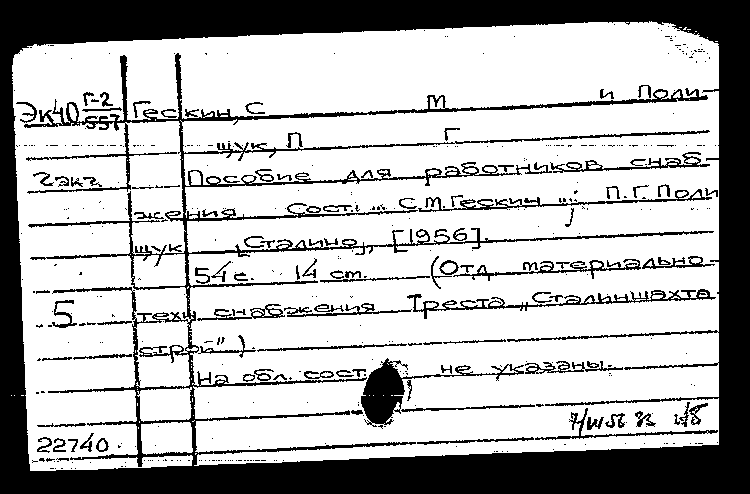 Эк40 Г-2 Гескин, С М и Поли-
557
щук, П Г
2 экз Пособие для работников снаб-
жения Сост.: „ С.М. Гескин „; П.Г. Поли
щук [Сталино], [1956].
54 с. 14 ст. (Отд материально-
5 техн снабжения Треста „Сталиншахта
строй")
На обл. сост. не указаны.
22740.